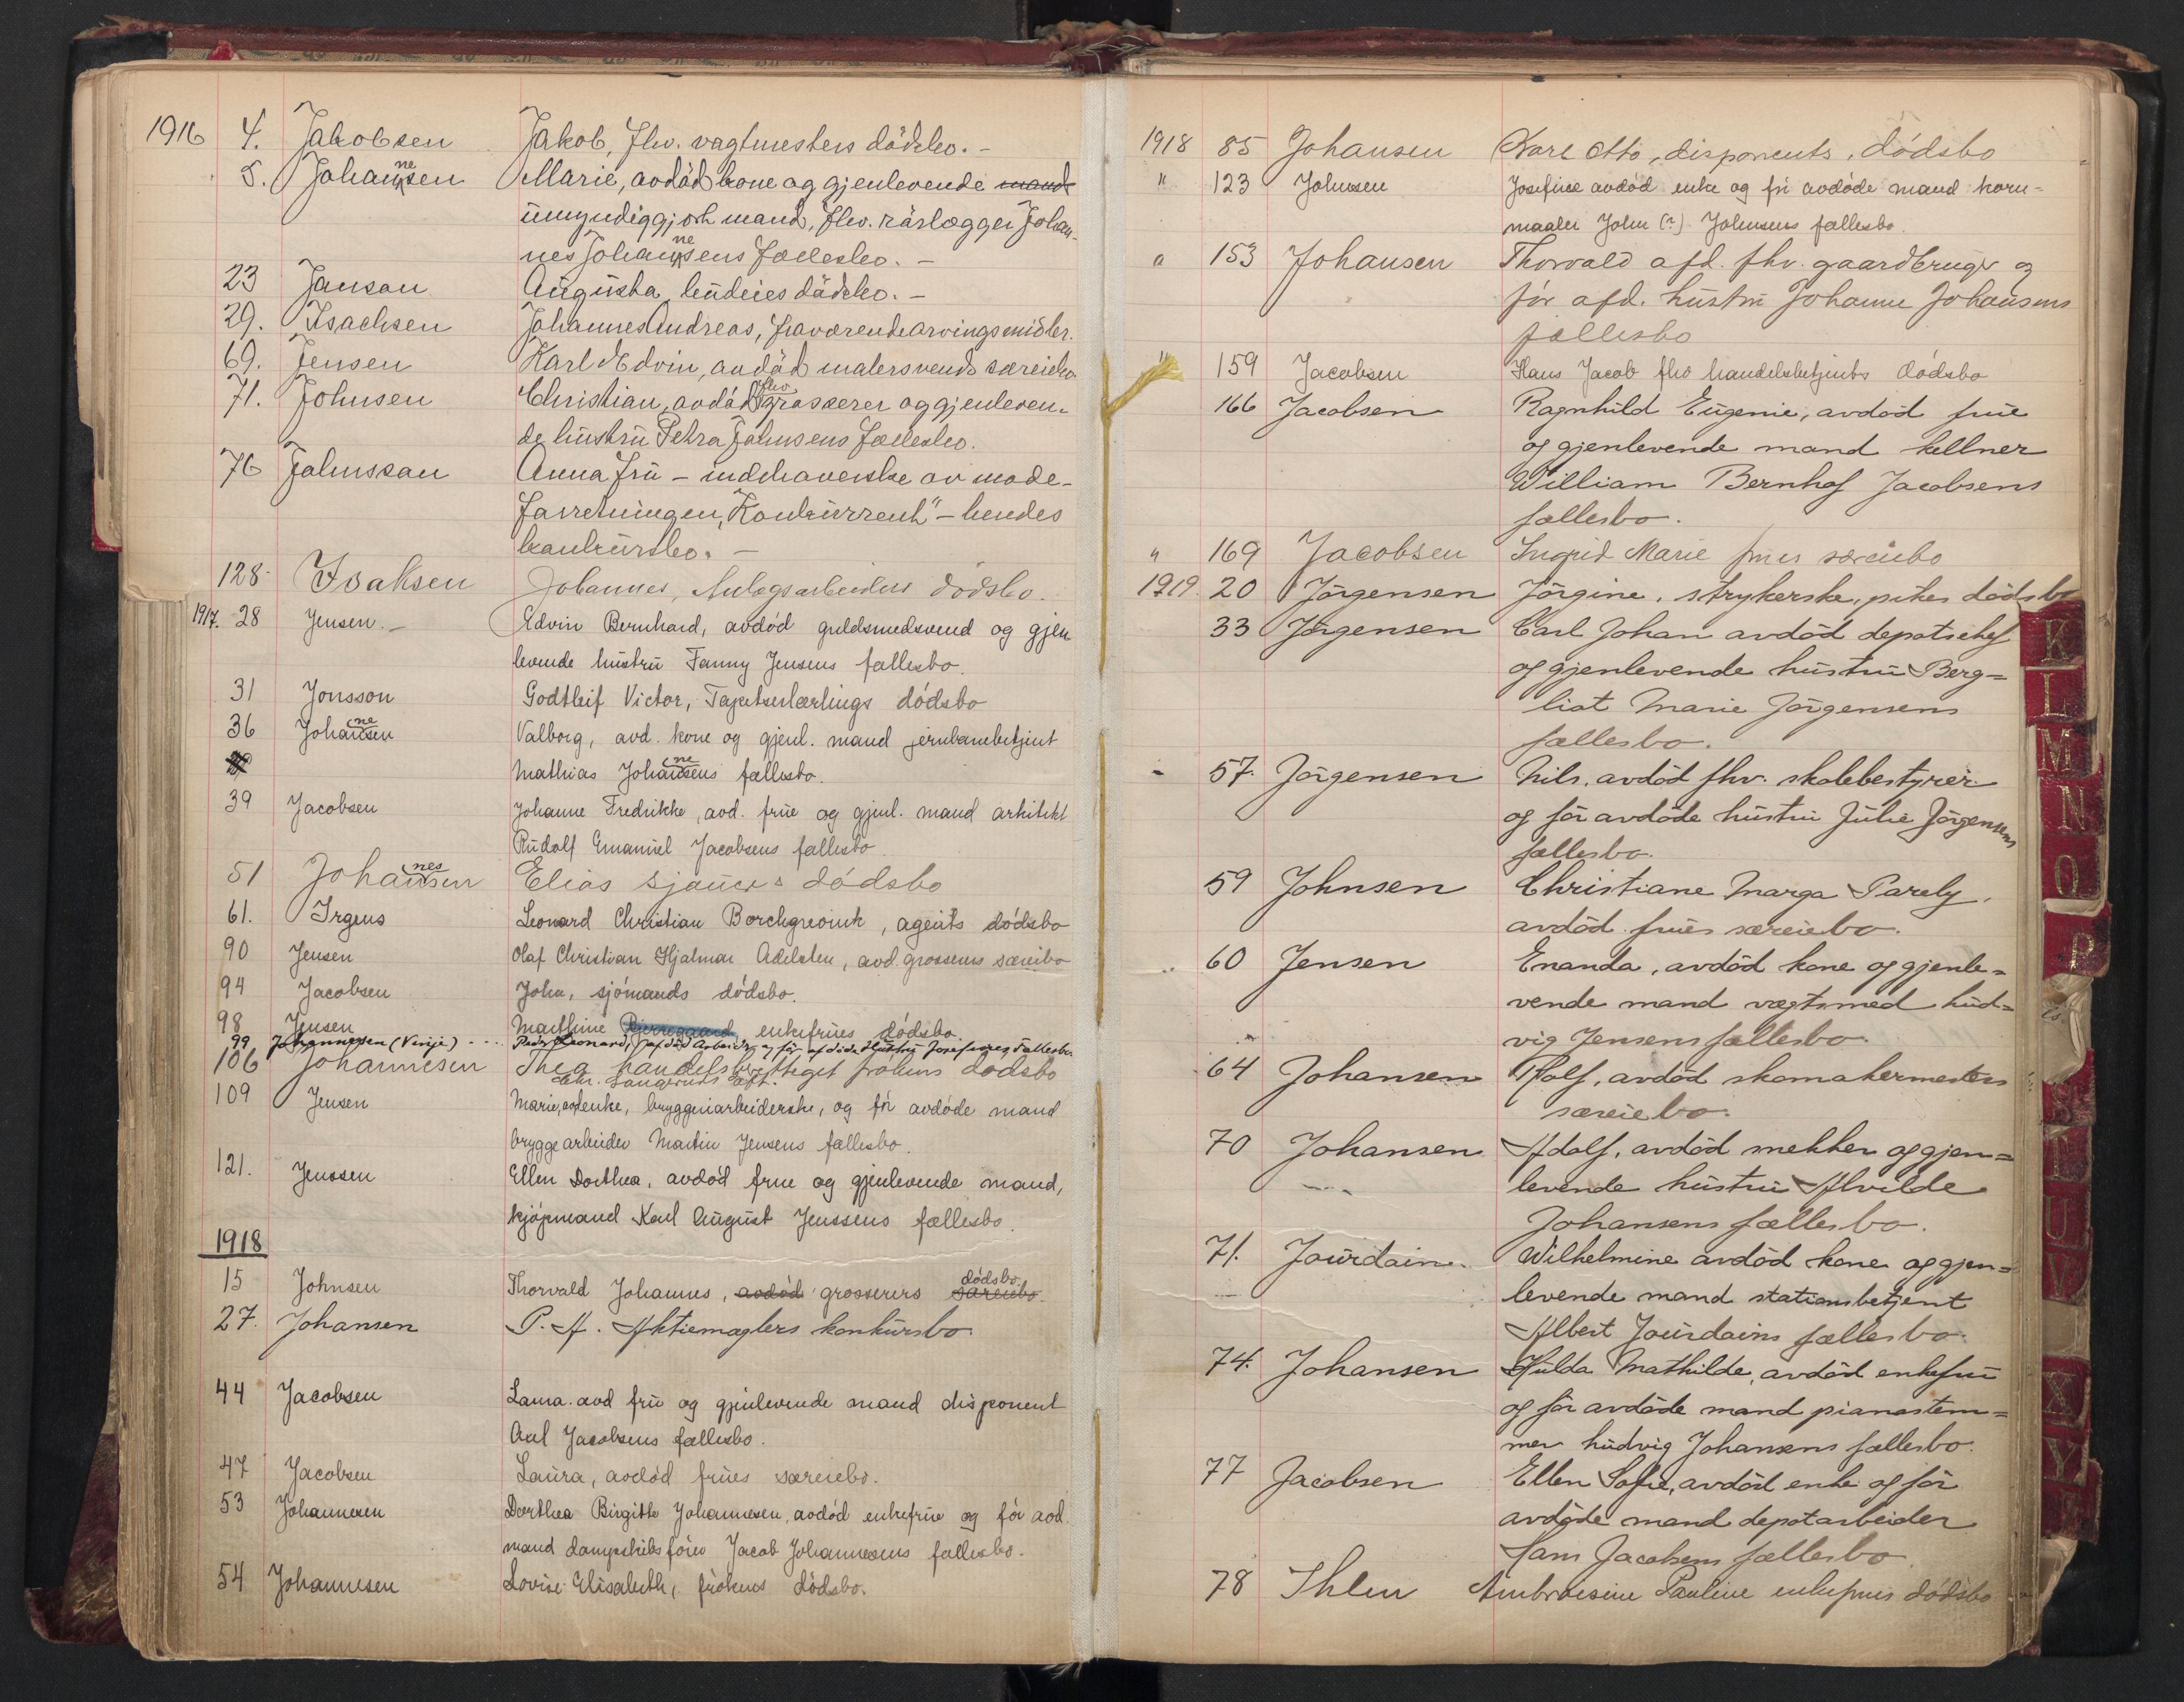 1916 4. Jakobsen Jakob, fhv. vagtmesters dödsbo. -
5. Johannesen Marie, avdöd kone og gjenlevende mand
umyndiggjort mand, fhv. rörlægger Johan-
nes Johannesens fællesbo. -
23 Janson Augusta, Leudeies dödsbo. -
29. Isachsen Johannes Andreas, fraværende arvings midler.
69. Jensen Karl Edvin, avdöd malersvends særeiebo.
71. Johnsen Christian, avdöd fhv grosserer og gjenleven-
de hustru Petra Johnsens fællesbo.
76 Johnsson Anna fru - indehaverske av mode-
forretningen "Konkurrent" - hendes
konkursbo. -
128. Isaksen Johannes, Anlægsarbeiders dödsbo.
1917. 28 Jensen. - Edvin Bernhard, avdöd guldsmedsvend og gjen
levende hustru Fanny Jensens fællesbo.
31 Jonsson Godtleif Victor, Tapetserlærlings dödsbo
36 Johannesen Valborg, avd. kone og gjenl. mand jernbanebetjent
Mathias Johannesens fællesbo.
39 Jacobsen Johanne Fredrikke, avd. frue og gjenl. mand arkitekt
Rudolf Emanuel Jacobsens fællesbo
51 Johannesen Elias sjauers dödsbo
61. Irgens Leonard Christian Borchgrevink, agents dödsbo
90 Jensen Olaf Christian Hjalmar Adelsten, avd. grosserers særeiebo
94 Jacobsen John, sjömands dödsbo.
98 Jensen Marthine Bjerregaard, enkefrues dödsbo.
99 Johannesen (Vinje) - ... Peder Leonard, afdöd Arbeider og før afdöde Hustru Josefines Fællesbo.
106 Johannesen Thea handelsberettiget frökens dödsbo
Chr. Langaards Eft.
109 Jensen Marie, avd enke, bryggeriarbeiderske, og för avdöde mand
bryggearbeider Martin Jensens fællesbo.
121. Jenssen Ellen Dorthea, avdöd frue og gjenlevende mand,
kjöpmand Karl August Jenssens fællesbo.
1918
15 Johnsen Thorvald Johannes, avdöd grosserers særeiebo dödsbo.
27. Johansen P. A. Aktiemæglers konkursbo.
44 Jacobsen Laura. avd fru og gjenlevende mand disponent
Axel Jacobsens fællesbo.
47 Jacobsen Laura, avdöd frues særeiebo.
53 Johannesen Dorthea Birgitte Johannesen, avdöd enkefrue og för avd.
mand dampskibsförer Jacob Johannesens fællesbo.
54 Johannesen Lovise Elisabeth, frökens dödsbo.
1918 85 Johansen Karl Otto, disponents, dödsbo
" 123 Johnsen Josefine avdöd enke og för avdöde mand korn-
maaler John (?) Johnsens fællesbo.
" 153 Johansen Thorvald afd. fhv. gaardbruger og
för afd. hustru Johanne Johansens
fællesbo
" 159 Jacobsen Hans Jacob fhv handelsbetjents dödsbo
166 Jacobsen Ragnhild Eugenie, avdöd frue
og gjenlevende mand kellner
William Bernhof Jacobsens
fællesbo.
" 169 Jacobsen Ingrid Marie frues særeiebo
1919. 20 Jörgensen Jörgine, strykerske, pikes dödsbo
33 Jörgensen Carl Johan avdöd depotchef
og gjenlevende hustru Berg-
liot Marie Jörgensens
fællesbo.
- 57. Jörgensen Nils, avdöd fhv. skolebestyrer
og för avdöde hustru Julie Jörgensens
fællesbo.
59 Johnsen Christiane Marga Parely,
avdöd frues særeiebo.
60 Jensen Enanda, avdöd kone og gjenle-
vende mand vægtsmed Lud-
vig Jensens fællesbo.
64 Johansen Rolf, avdöd skomakermesters
særeiebo.
70 Johansen Adolf, avdöd snekker og gjen-
levende hustru Alvilde
Johansens fællesbo.
71. Jourdain. Wilhelmine avdöd kone og gjen-
levende mand stationsbetjent
Albert Jourdains fællesbo.
74. Johansen Hulda Mathilde, avdöd enkefru
og för avdöde mand pianostem-
mer Ludvig Johansens fællesbo.
77 Jacobsen Ellen Sofie, avdöd enke og för
avdöde mand depotarbeider
Hans Jacobsens fællesbo.
78 Ihlen Ambrosine Pauline enkefrues dödsbo
K
L
M
N
O
P
S
T
U
V
X
Y